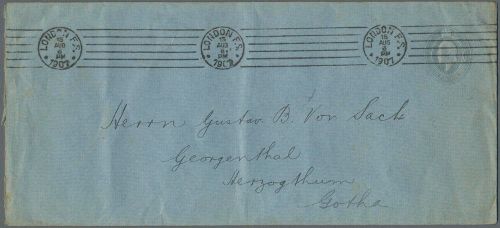 LONDON F.S. 15 AUG 8 PM 1907
LONDON F.S. 15 AUG 8 PM 1907
LONDON F.S. 15 AUG 8 PM 1907
Herrn Gustav. B. Von Sack
Georgenthal
Herzogthum
Gotha